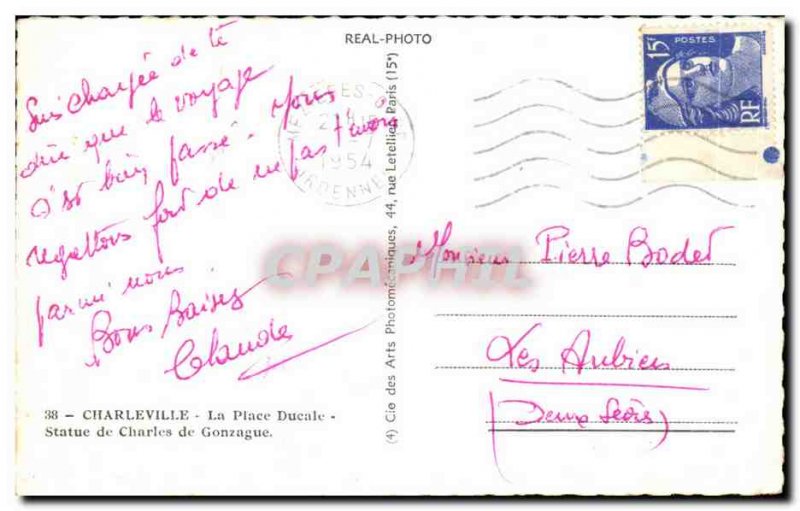 REAL-PHOTO
Suis chargée de te
dire que le voyage
s'est bien passé. Nous
regrettons fort de ne pas t'avoir
parmi nous.
Bons Baisers
Claude
38 - CHARLEVILLE - La Place Ducale -
Statue de Charles de Gonzague.
(4) Cie des Arts Photomécaniques, 44, rue Letellier, Paris (15e)
1954
ARDENNES
15F
POSTES
RF
Monsieur Pierre Bodet
Les Aubiers
(Deux Sèvres)
CPAPHIL